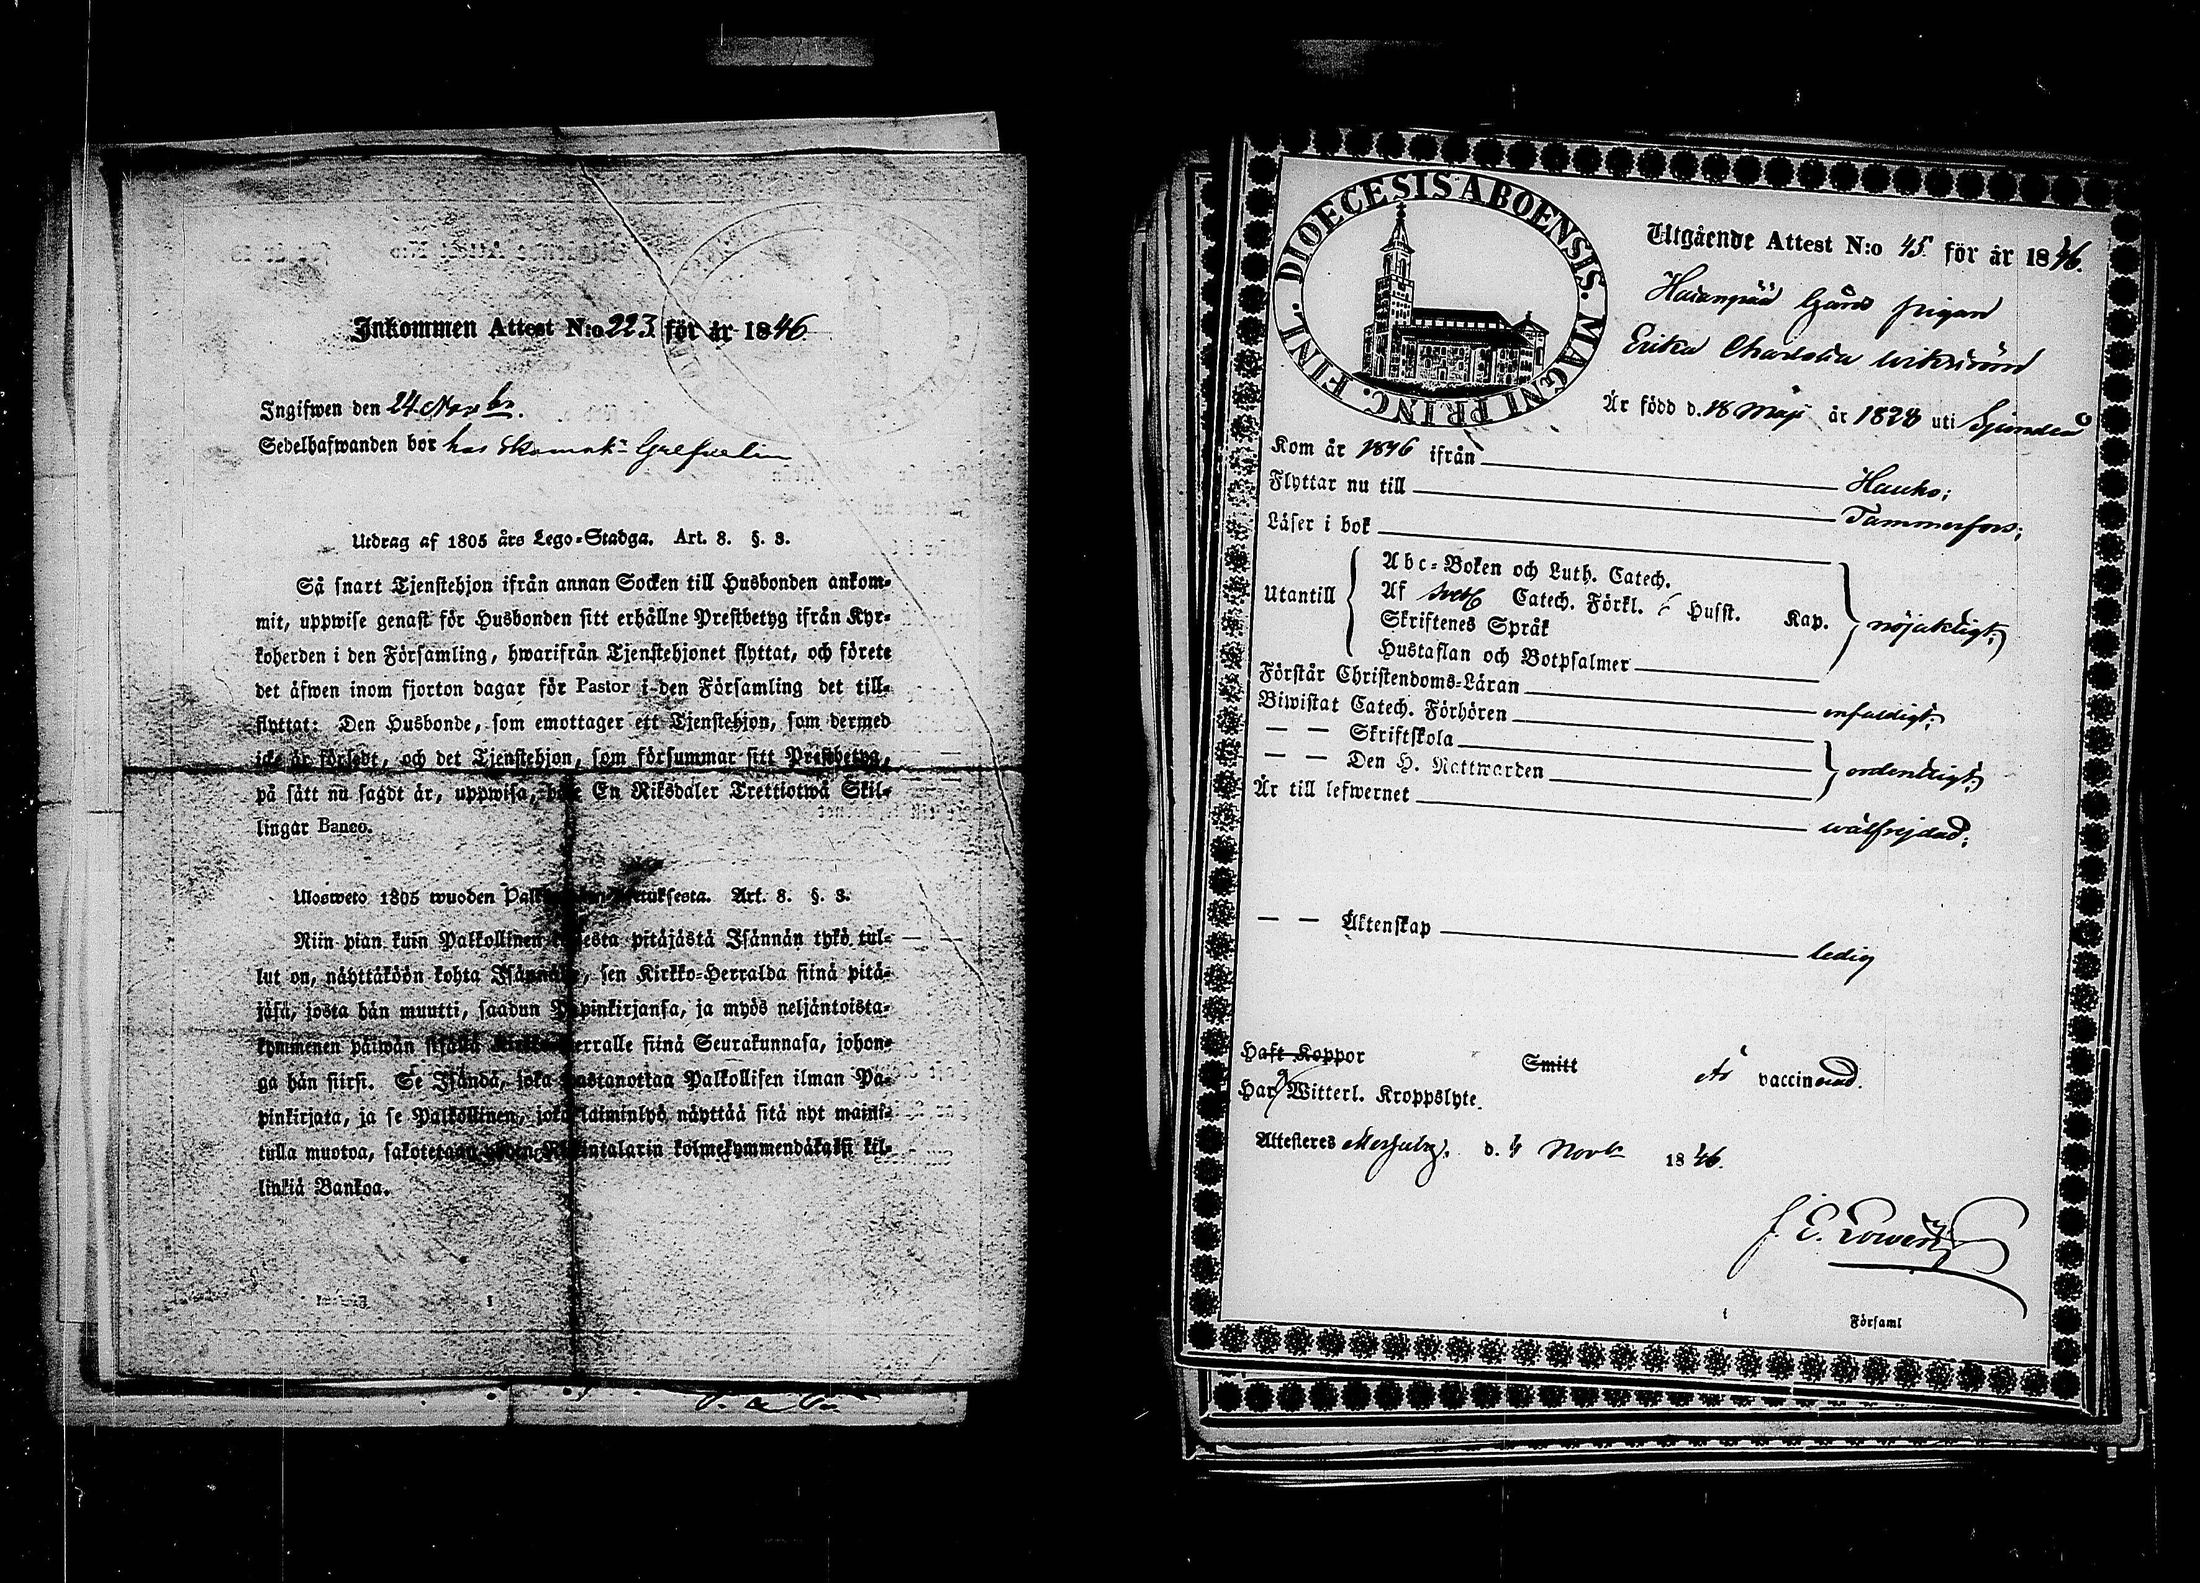 Inkommen Attest N:o 223 för år 1846.
Ingifwen den 24 Novbr.
Sedelhafwanden bor hos
Utdrag af 1805 års Lego-Stadga. Art. 8. §. 3.
Så snart Tjenstehjon ifrån annan Socken till Husbonden ankom-
mit, uppwise genast för Husbonden sitt erhållne Prestbetyg ifrån Kyr-
koherden i den Församling, hwarifrån Tjenstehjonet flyttat, och förete
det äfwen inom fjorton dagar för Pastor i den Församling det till-
flyttat: Den Husbonde, som emottager ett Tjenstehjon, som dermed
icke är försedt, och det Tjenstehjon, som försummar sitt Prestbetyg,
på sätt nu sagdt är, uppwisa, En Riksdaler Trettiotwå Skil-
lingar Banco.
Ulosweto 1805 wuoden Art. 8. §. 3.
Niin pian kuin Palkollinen pitäjästä Isännän tykö tul-
lut on, näyttäköön kohta sen Kirkko-Herralda siinä pitä-
jäsä, josta hän muutti, saadun Papinkirjansa, ja myös neljäntoista-
kymmenen päiwän sisällä siinä Seurakunnasa, johon-
ga hän siirsi. Se Isändä, joka wastanottaa Palkollisen ilman Pa-
pinkirjata, ja se Palkollinen, joka laiminlyö näyttää sitä nyt maini-
tulla muotoa, sakotetaan kolmekymmendäkaksi kil-
linkiä Bankoa.
DIOECESIS ABOENSIS. MAGNI PRINC. FINL.
Utgående Attest N:o 45 för år 1846.
Gårds pigan
Erika Charlotta Wikström
Är född d. 18 Maji år 1828 uti Sjundeå
Kom år 1846 ifrån Hauho;
Flyttar nu till Tammerfors;
Läser i bok
Utantill
Abc-Boken och Luth. Catech.
Af Catech. Förkl. Husst. Kap.
Skriftenes Språk
Hustaflan och Botpsalmer
nöjaktigt;
Förstår Christendoms-Läran enfaldigt;
Biwistat Catech. Förhören
— — Skriftskola
— — Den H. Nattwarden
ordentligt;
Är till lefwernet wälfrejdad;
— — Äktenskap ledig
Haft Koppor Smitt Är vaccinerad.
Har Witterl. Kroppslyte.
Attesteres d. 4 Novbr 1846.
Församl